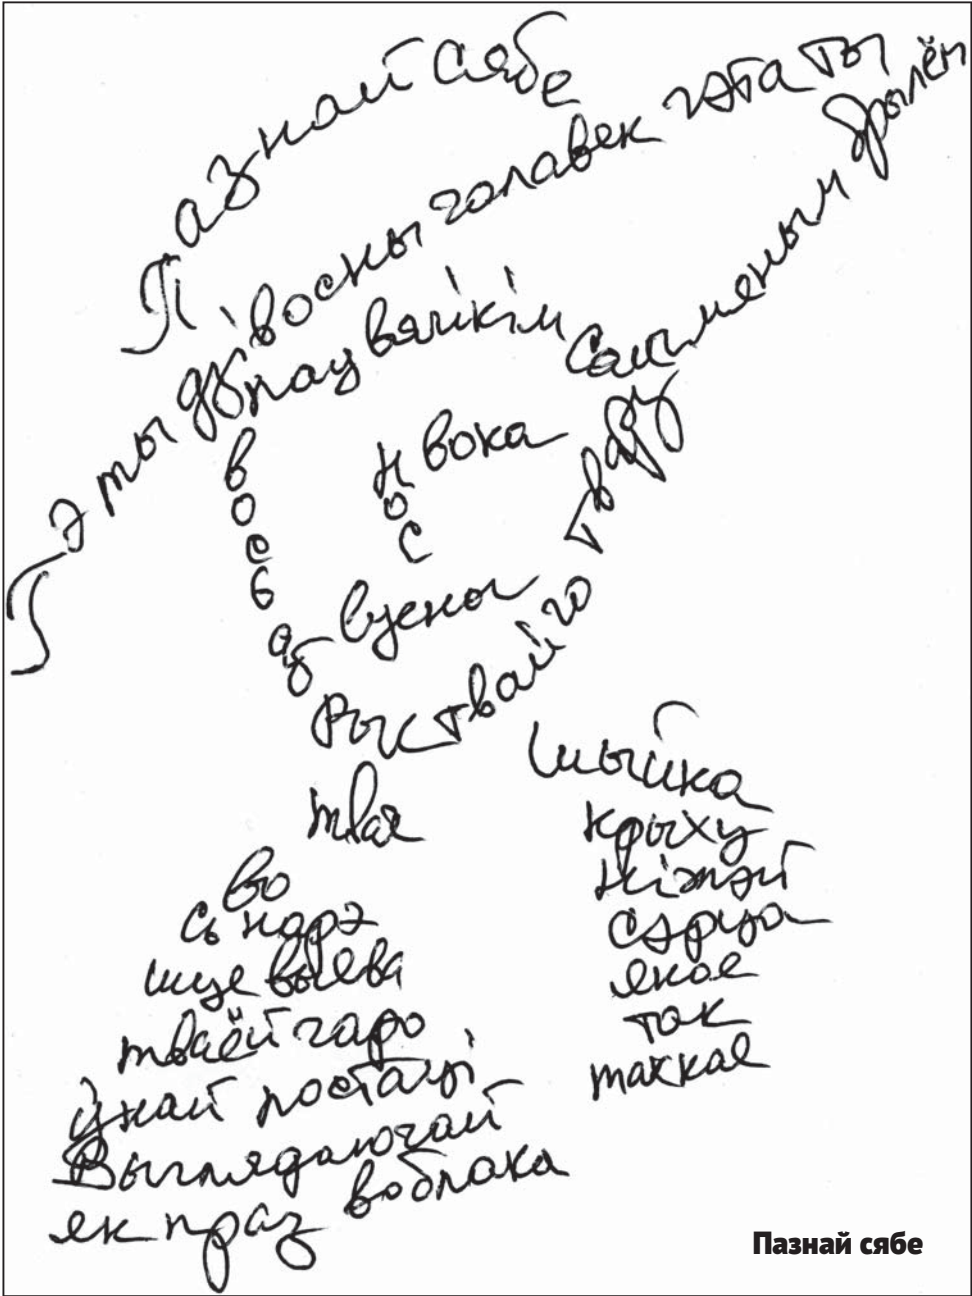 Пазнай Сябе
Гэты дзівосны чалавек гэта ты
пад вялікім Саламяным брылём
вока
нос
вусны
вось аб
рыс твайго
твару
твая
шыйка
во
сь нарэ
шце выява
тваёй чаро
ўнай постаці
Выглядаючай
як праз воблака
крыху
ніжэй
сэрца
якое
так
таккае
Пазнай сябе